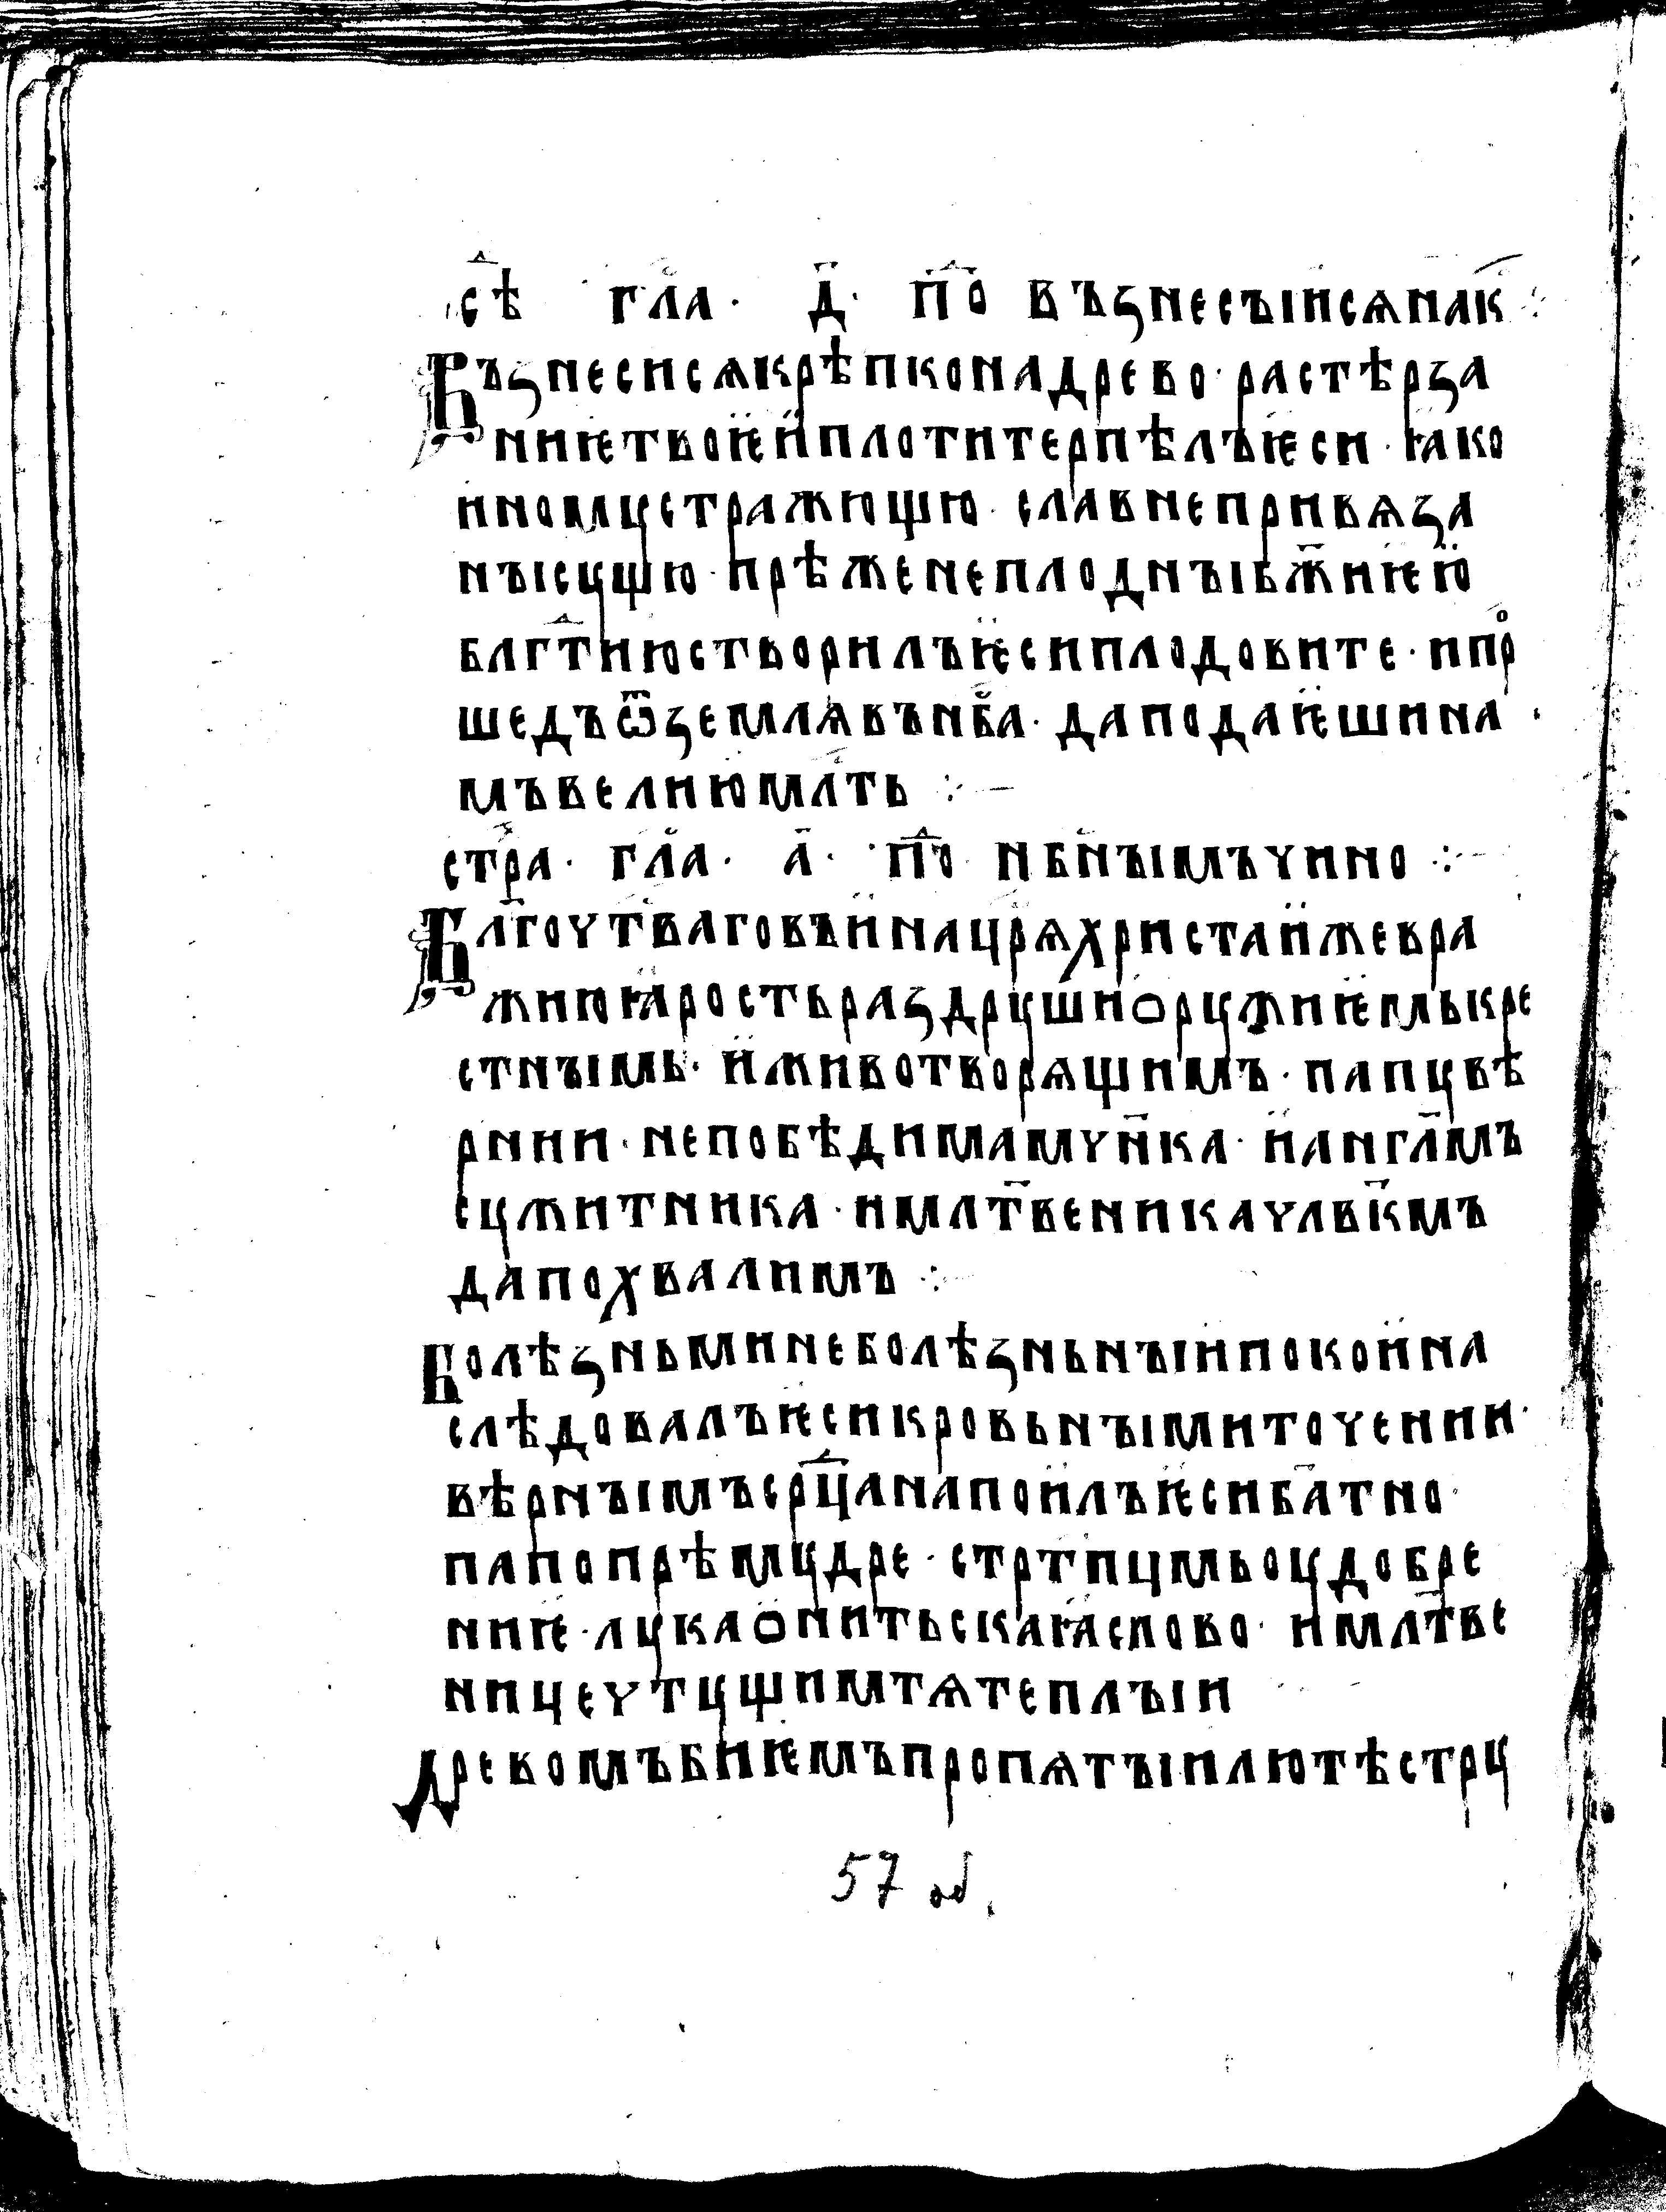 сѣⷣ гл҇а · д҃ · поⷣ въꙁнесъıисѧнак ⁘
Въꙁнесисѧкрѣпконадрево · растѣрꙁа
ниѥтвоѥѝплотитерпѣлъѥси · ꙗко
иномꙋстражющю · славнепривѧꙁа
нъıсꙋщю · прѣженеплоднъıбж҃иѥю
блгⷣтиюстворилъѥсиплодовите · ипрⷪ
шедъѿꙁемлѧвън҃ба · даподаѥшина
мъвелиюмл҃ть ⁘ —
стрⷯа · гл҇а · а҃ · поⷣ нбнъıмъчино ⁘ —
Бл҃гоутваговѣинацр҃ѧхристаижевра
жиюꙗростьраꙁдрꙋшиорꙋжиѥмькре
стнъımь · иживотворѧщимъ · папꙋвѣ
рнии · непобѣдимамчн҃ка · иангл҃мъ
сꙋжитника · имлт҃веникачлвк҃мъ
дапохвалимъ ⁘ —
Болѣꙁньминеболѣꙁньнъıипокоина
слѣдовалъѥсикровьнъıмиточении ·
вѣрнъıмъсрцⷣанапоилъѥсиб҃атно ·
папопрѣмꙋдре · стртпцмьоꙋдобре
ниѥ · лꙋкаонитьскаꙗслово · имлт҃ве
ницечтꙋщимтѧтеплъıи
Древомъбиѥмъпропѧтъıилютѣстрꙋ
57 об.